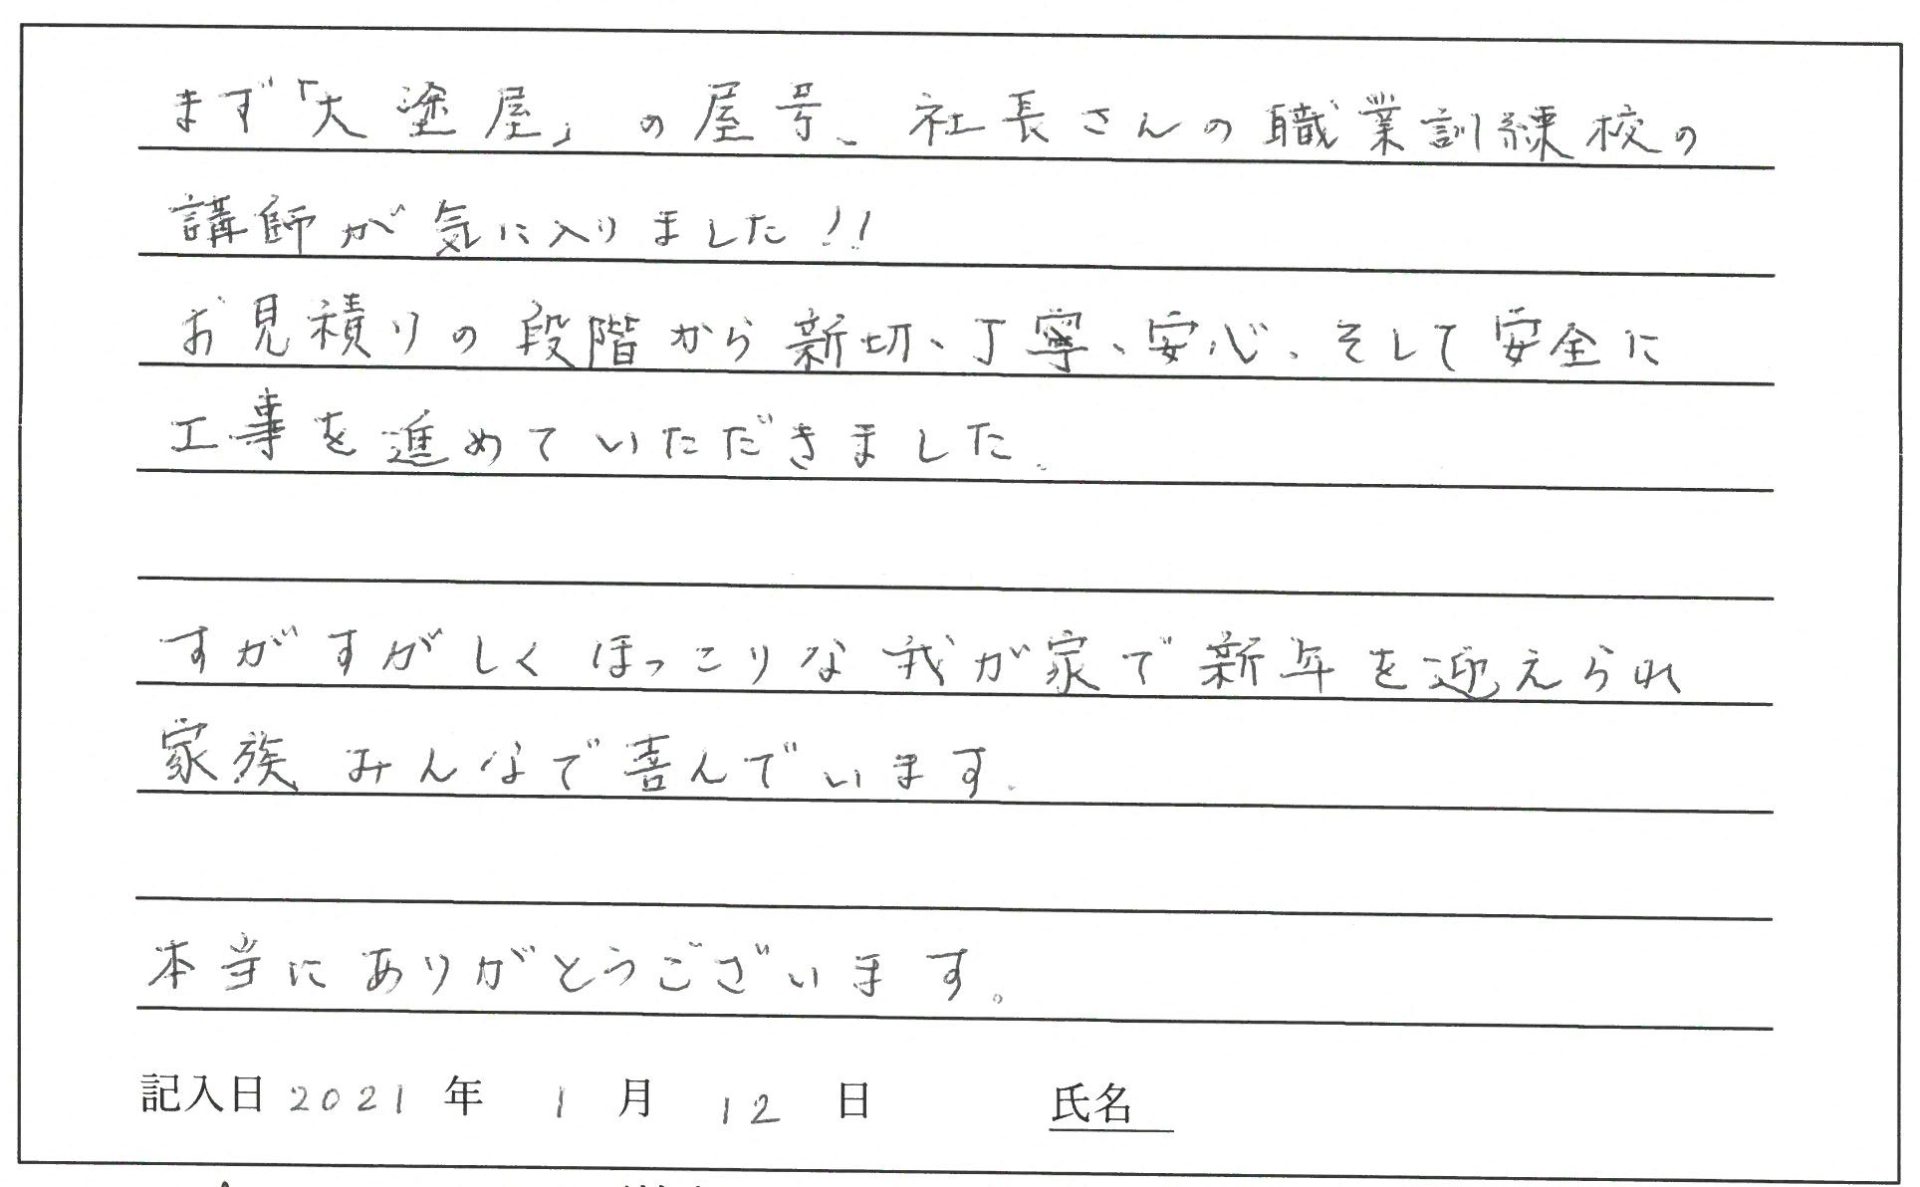 まず「大塗屋」の屋号、社長さんの職業訓練校の
講師が気に入りました!!
お見積りの段階から新切、丁寧、安心、そして安全に
工事を進めていただきました。
すがすがしくほっこりな我が家で新年を迎えられ
家族みんなで喜んでいます。
本当にありがとうございます。
記入日 2021 年 1 月 12 日 氏名